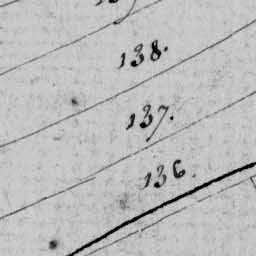 138.
137.
136.